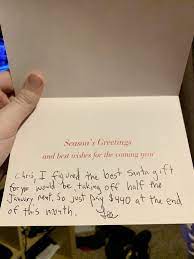 Season's Greetings
and best wishes for the coming year
Chris, I figured the best santa gift
for you would be taking off half the
January rent. So just pay $440 at the
end
of this month.